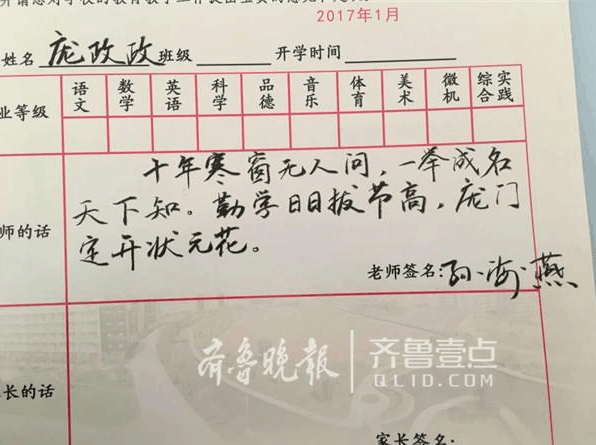 2017年1月
姓名 庞政政 班级 开学时间
语文 数学 英语 科学 品德 音乐 体育 美术 微机 综合实践
业等级
十年寒窗无人问，一举成名
天下知。勤学日日拔节高，庞门
师的话
定开状元花。
老师签名：孙海燕
齐鲁晚报 齐鲁壹点
QLID.COM
长的话
家长签名：